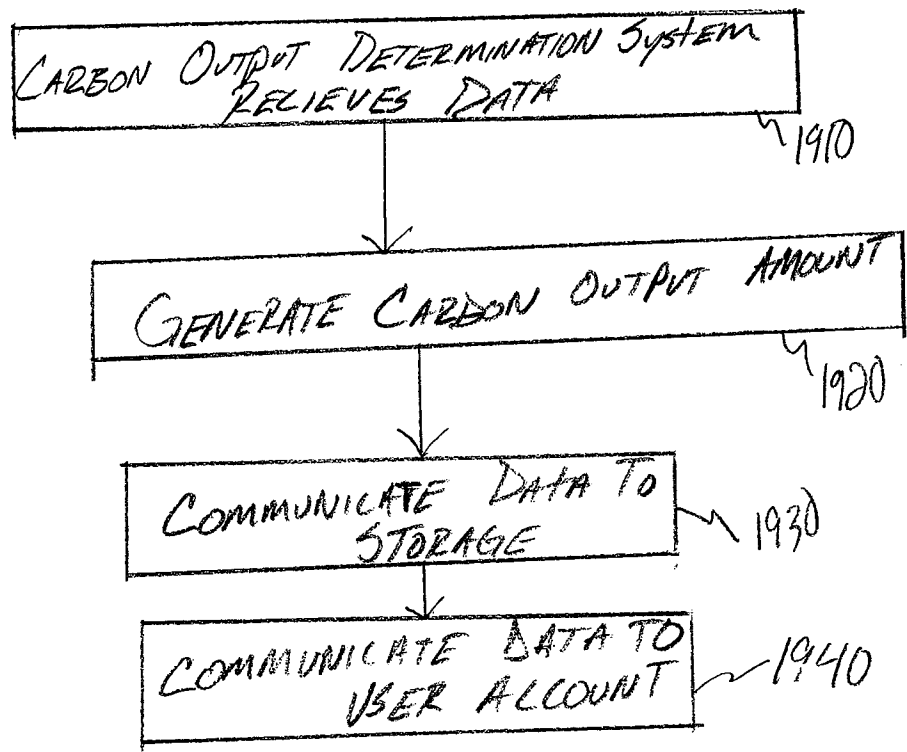 CARBON OUTPUT DETERMINATION System
RELIEVES DATA
1910
GENERATE CARBON OUTPUT AMOUNT
1920
COMMUNICATE DATA TO
STORAGE
1930
COMMUNICATE DATA TO
USER ACCOUNT
1940